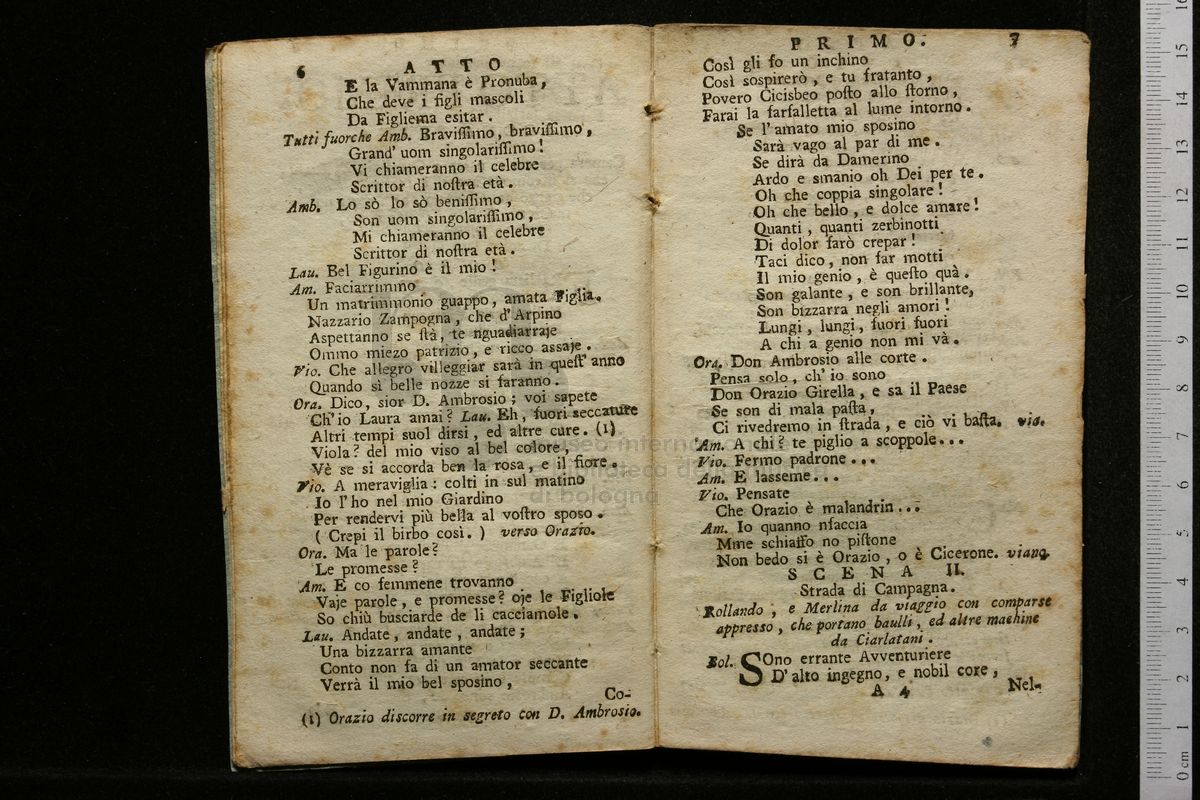 6 ATTO
E la Vammana è Pronuba,
Che deve i figli mascoli
Da Figliema esitar.
Tutti fuorche Amb. Bravissimo, bravissimo,
Grand' uom singolarissimo!
Vi chiameranno il celebre
Scrittor di nostra età.
Amb. Lo sò lo sò benissimo,
Son uom singolarissimo,
Mi chiameranno il celebre
Scrittor di nostra età.
Lau. Bel Figurino è il mio!
Am. Faciarrimmo
Un matrimmonio guappo, amata Figlia.
Nazzario Zampogna, che d'Arpino
Aspettanno se stà, te nguadiarraje
Ommo miezo patrizio, e ricco assaje.
Vio. Che allegro villeggiar sarà in quest' anno
Quando sì belle nozze si faranno.
Ora. Dico, sior D. Ambrosio; voi sapete
Ch'io Laura amai? Lau. Eh, fuori seccature
Altri tempi suol dirsi, ed altre cure. (1)
Viola? del mio viso al bel colore,
Vè se si accorda ben la rosa, e il fiore.
Vio. A meraviglia: colti in sul matino
Io l'ho nel mio Giardino
Per rendervi più bella al vostro sposo.
( Crepi il birbo così. ) verso Orazio.
Ora. Ma le parole?
Le promesse?
Am. E co femmene trovanno
Vaje parole, e promesse? oje le Figliole
So chiù busciarde de li cacciamole.
Lau. Andate, andate, andate;
Una bizzarra amante
Conto non fa di un amator seccante
Verrà il mio bel sposino,
Co-
(1) Orazio discorre in segreto con D. Ambrosio.
PRIMO. 7
Così gli fo un inchino
Così sospirerò, e tu fratanto,
Povero Cicisbeo posto allo storno,
Farai la farfalletta al lume intorno.
Se l'amato mio sposino
Sarà vago al par di me.
Se dirà da Damerino
Ardo e smanio oh Dei per te.
Oh che coppia singolare!
Oh che bello, e dolce amare!
Quanti, quanti zerbinotti
Di dolor farò crepar!
Taci dico, non far motti
Il mio genio, è questo quà.
Son galante, e son brillante,
Son bizzarra negli amori!
Lungi, lungi, fuori fuori
A chi a genio non mi và.
Ora. Don Ambrosio alle corte.
Pensa solo, ch'io sono
Don Orazio Girella, e sa il Paese
Se son di mala pasta,
Ci rivedremo in strada, e ciò vi basta. via.
Am. A chi? te piglio a scoppole...
Vio. Fermo padrone...
Am. E lasseme...
Vio. Pensate
Che Orazio è malandrin...
Am. Io quanno nfaccia
Mme schiaffo no pistone
Non bedo si è Orazio, o è Cicerone. viano.
SCENA II.
Strada di Campagna.
Rollando, e Merlina da viaggio con comparse
appresso, che portano baulli, ed altre machine
da Ciarlatani.
Rol. SOno errante Avventuriere
D'alto ingegno, e nobil core,
A 4 Nel-